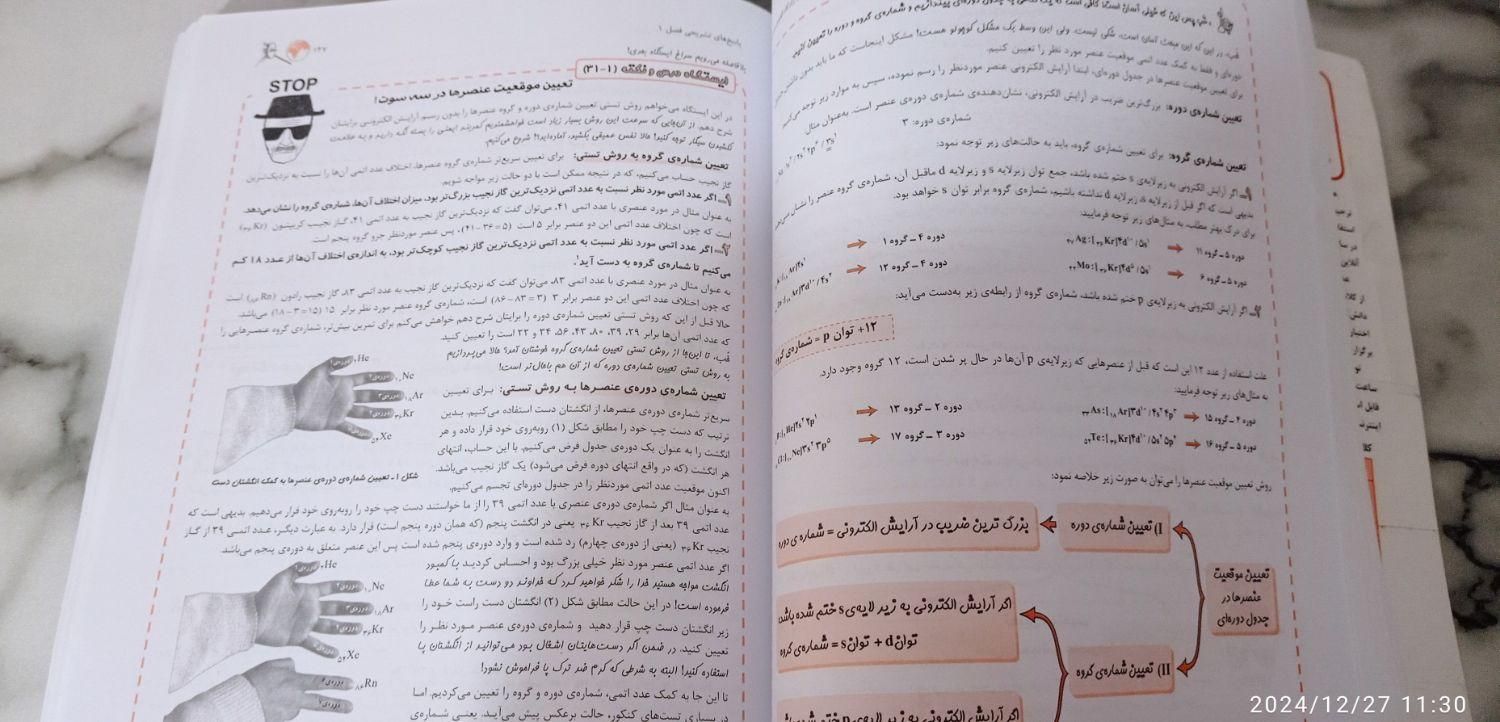 پاسخ‌های تشریحی فصل ۱
۱۴۷
بلافاصله می‌رویم سراغ ایستگاه بعدی!
ایستگاه درس و نکته (۱-۳۱)
STOP
تعیین موقعیت عنصرها در سه سوت!
در این ایستگاه می‌خواهم روش تستی تعیین شماره‌ی دوره و گروه عنصرها را بدون رسم آرایش الکترونی برایتان
شرح دهم.
تعیین شماره‌ی گروه به روش تستی: برای تعیین سریع‌تر شماره‌ی گروه عنصرها، اختلاف عدد اتمی آن‌ها را نسبت به نزدیک‌ترین
گاز نجیب حساب می‌کنیم، که در نتیجه ممکن است با دو حالت زیر مواجه شویم.
اگر عدد اتمی مورد نظر نسبت به عدد اتمی نزدیک‌ترین گاز نجیب بزرگ‌تر بود، میزان اختلاف آن‌ها، شماره‌ی گروه را نشان می‌دهد.
به عنوان مثال در مورد عنصری با عدد اتمی ۴۱، می‌توان گفت که نزدیک‌ترین گاز نجیب به عدد اتمی ۴۱، گاز نجیب کریپتون (₃₆Kr)
است که چون اختلاف عدد اتمی این دو عنصر برابر ۵ است (۵ = ۳۶ − ۴۱)، پس عنصر موردنظر جزو گروه پنجم است.
اگر عدد اتمی مورد نظر نسبت به عدد اتمی نزدیک‌ترین گاز نجیب کوچک‌تر بود، به اندازه‌ی اختلاف آن‌ها از عدد ۱۸ کم
می‌کنیم تا شماره‌ی گروه به دست آید.
به عنوان مثال در مورد عنصری با عدد اتمی ۸۳، می‌توان گفت که نزدیک‌ترین گاز نجیب به عدد اتمی ۸۳، گاز نجیب رادون (₈₆Rn) است
که چون اختلاف عدد اتمی این دو عنصر برابر ۳ (۳ = ۸۳ − ۸۶) است، شماره‌ی گروه عنصر مورد نظر برابر ۱۵ (۱۵ = ۳ − ۱۸) می‌باشد.
حالا قبل از این که روش تستی تعیین شماره‌ی دوره را برایتان شرح دهم خواهش می‌کنم برای تمرین بیش‌تر، شماره‌ی گروه عنصرهایی را
که عدد اتمی آن‌ها برابر ۲۹، ۳۹، ۸۰، ۴۳، ۵۶، ۳۴ و ۲۲ است را تعیین کنید.
خب، تا این‌جا از روش تستی تعیین شماره‌ی گروه خوشتان آمد؟ حالا می‌پردازیم
به روش تستی تعیین شماره‌ی دوره که از آن هم باحال‌تر است!
تعیین شماره‌ی دوره‌ی عنصرها به روش تستی: برای تعیین
سریع‌تر شماره‌ی دوره‌ی عنصرها، از انگشتان دست استفاده می‌کنیم. بدین
ترتیب که دست چپ خود را مطابق شکل (۱) روبه‌روی خود قرار داده و هر
انگشت را به عنوان یک دوره‌ی جدول فرض می‌کنیم. با این حساب، انتهای
هر انگشت (که در واقع انتهای دوره فرض می‌شود) یک گاز نجیب می‌باشد.
اکنون موقعیت عدد اتمی موردنظر را در جدول دوره‌ای تجسم می‌کنیم.
₂He
دوره‌ی ۱
₁₀Ne
دوره‌ی ۲
₁₈Ar
دوره‌ی ۳
₃₆Kr
₅₄Xe
شکل ۱ ـ تعیین شماره‌ی دوره‌ی عنصرها به کمک انگشتان دست
به عنوان مثال اگر شماره‌ی دوره‌ی عنصری با عدد اتمی ۳۹ را از ما خواستند دست چپ خود را روبه‌روی خود قرار می‌دهیم. بدیهی است که
عدد اتمی ۳۹ بعد از گاز نجیب ₃₆Kr یعنی در انگشت پنجم (که همان دوره پنجم است) قرار دارد. به عبارت دیگر، عدد اتمی ۳۹ از گاز
نجیب ₃₆Kr (یعنی از دوره‌ی چهارم) رد شده است و وارد دوره‌ی پنجم شده است پس این عنصر متعلق به دوره‌ی پنجم می‌باشد.
اگر عدد اتمی عنصر مورد نظر خیلی بزرگ بود و احساس کردید با کمبود
انگشت مواجه هستید خدا را شکر خواهید کرد که خداوند دو دست به شما عطا
فرموده است! در این حالت مطابق شکل (۲) انگشتان دست راست خود را
زیر انگشتان دست چپ قرار دهید و شماره‌ی دوره‌ی عنصر مورد نظر را
تعیین کنید. در ضمن اگر دست‌هایتان اشغال بود می‌توانید از انگشتان پا
استفاده کنید! البته به شرطی که کرم ضد ترک پا فراموش نشود!
₂He
₁₀Ne
₁₈Ar
₃₆Kr
₅₄Xe
₈₆Rn
تا این جا به کمک عدد اتمی، شماره‌ی دوره و گروه را تعیین می‌کردیم. اما
در بسیاری تست‌های کنکور، حالت برعکس پیش می‌آید. یعنی شماره‌ی
دوره‌ای و فقط به کمک عدد اتمی موقعیت عنصر مورد نظر را تعیین کنیم.
برای تعیین موقعیت عنصرها در جدول دوره‌ای، ابتدا آرایش الکترونی عنصر موردنظر را رسم نموده، سپس به موارد زیر توجه می‌کنیم
تعیین شماره‌ی دوره: بزرگ‌ترین ضریب در آرایش الکترونی، نشان‌دهنده‌ی شماره‌ی دوره‌ی عنصر است. به‌عنوان مثال
شماره‌ی دوره: ۳
تعیین شماره‌ی گروه: برای تعیین شماره‌ی گروه، باید به حالت‌های زیر توجه نمود:
اگر آرایش الکترونی به زیرلایه‌ی s ختم شده باشد، جمع توان زیرلایه s و زیرلایه d ماقبل آن، شماره‌ی گروه عنصر را نشان می‌دهد
بدیهی است که اگر قبل از زیرلایه s، زیرلایه d نداشته باشیم، شماره‌ی گروه برابر توان s خواهد بود.
برای درک بهتر مطلب به مثال‌های زیر توجه فرمایید:
₄₇Ag:[₃₆Kr]۴d¹⁰/۵s¹ → دوره ۵ ـ گروه ۱۱
Ar]۴s¹ → دوره ۴ ـ گروه ۱
₄₂Mo:[₃₆Kr]۴d⁵/۵s¹ → دوره ۵ ـ گروه ۶
Ar]۳d¹⁰/۴s² → دوره ۴ ـ گروه ۱۲
اگر آرایش الکترونی به زیرلایه‌ی p ختم شده باشد، شماره‌ی گروه از رابطه‌ی زیر به‌دست می‌آید:
۱۲ + توان p = شماره‌ی گروه
علت استفاده از عدد ۱۲ این است که قبل از عنصرهایی که زیرلایه‌ی p آن‌ها در حال پر شدن است، ۱۲ گروه وجود دارد.
به مثال‌های زیر توجه فرمایید:
₃₃As:[₁₈Ar]۳d¹⁰/۴s²۴p³ → دوره ۴ ـ گروه ۱۵
He]۲s²۲p¹ → دوره ۲ ـ گروه ۱۳
₅₂Te:[₃₆Kr]۴d¹⁰/۵s²۵p⁴ → دوره ۵ ـ گروه ۱۶
Ne]۳s²۳p⁵ → دوره ۳ ـ گروه ۱۷
روش تعیین موقعیت عنصرها را می‌توان به صورت زیر خلاصه نمود:
تعیین موقعیت
عنصرها در
جدول دوره‌ای
I) تعیین شماره‌ی دوره
بزرگ ترین ضریب در آرایش الکترونی = شماره ی دوره
II) تعیین شماره‌ی گروه
اگر آرایش الکترونی به زیر لایه‌ی s ختم شده باشد
توان d + توان s = شماره‌ی گروه
اگر آرایش الکترونی به زیر لایه‌ی p ختم شده باشد
2024/12/27 11:30